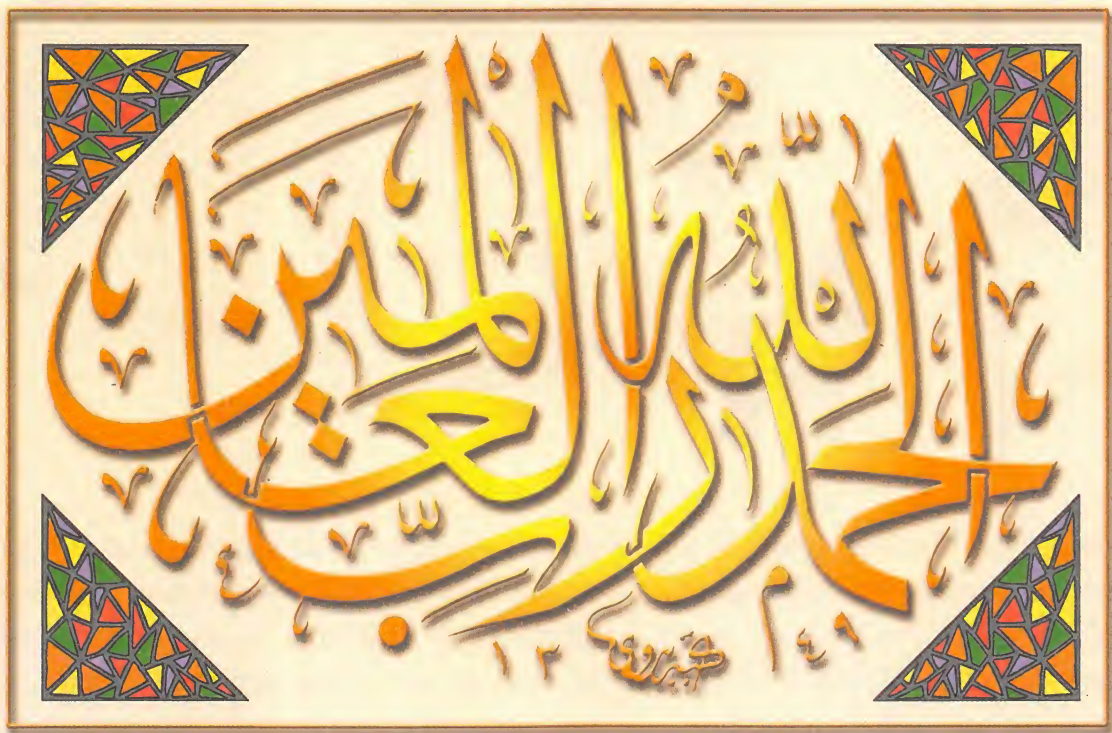 اَلْحَمْدُ لِلّٰهِ رَبِّ الْعَالَمِيْنَ
١٣ ٤٩